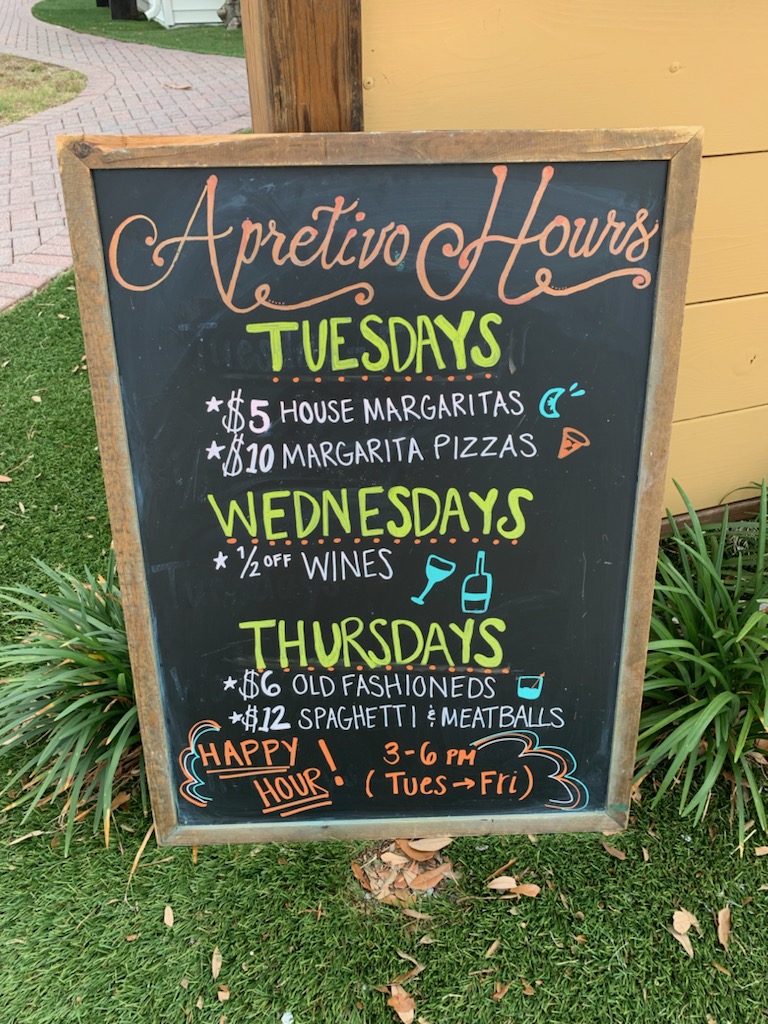 Apretivo Hours
TUESDAYS
*$5 HOUSE MARGARITAS
*$10 MARGARITA PIZZAS
WEDNESDAYS
*1/2 OFF WINES
THURSDAYS
*$6 OLD FASHIONEDS
*$12 SPAGHETTI & MEATBALLS
HAPPY HOUR! 3-6 PM
(Tues→Fri)